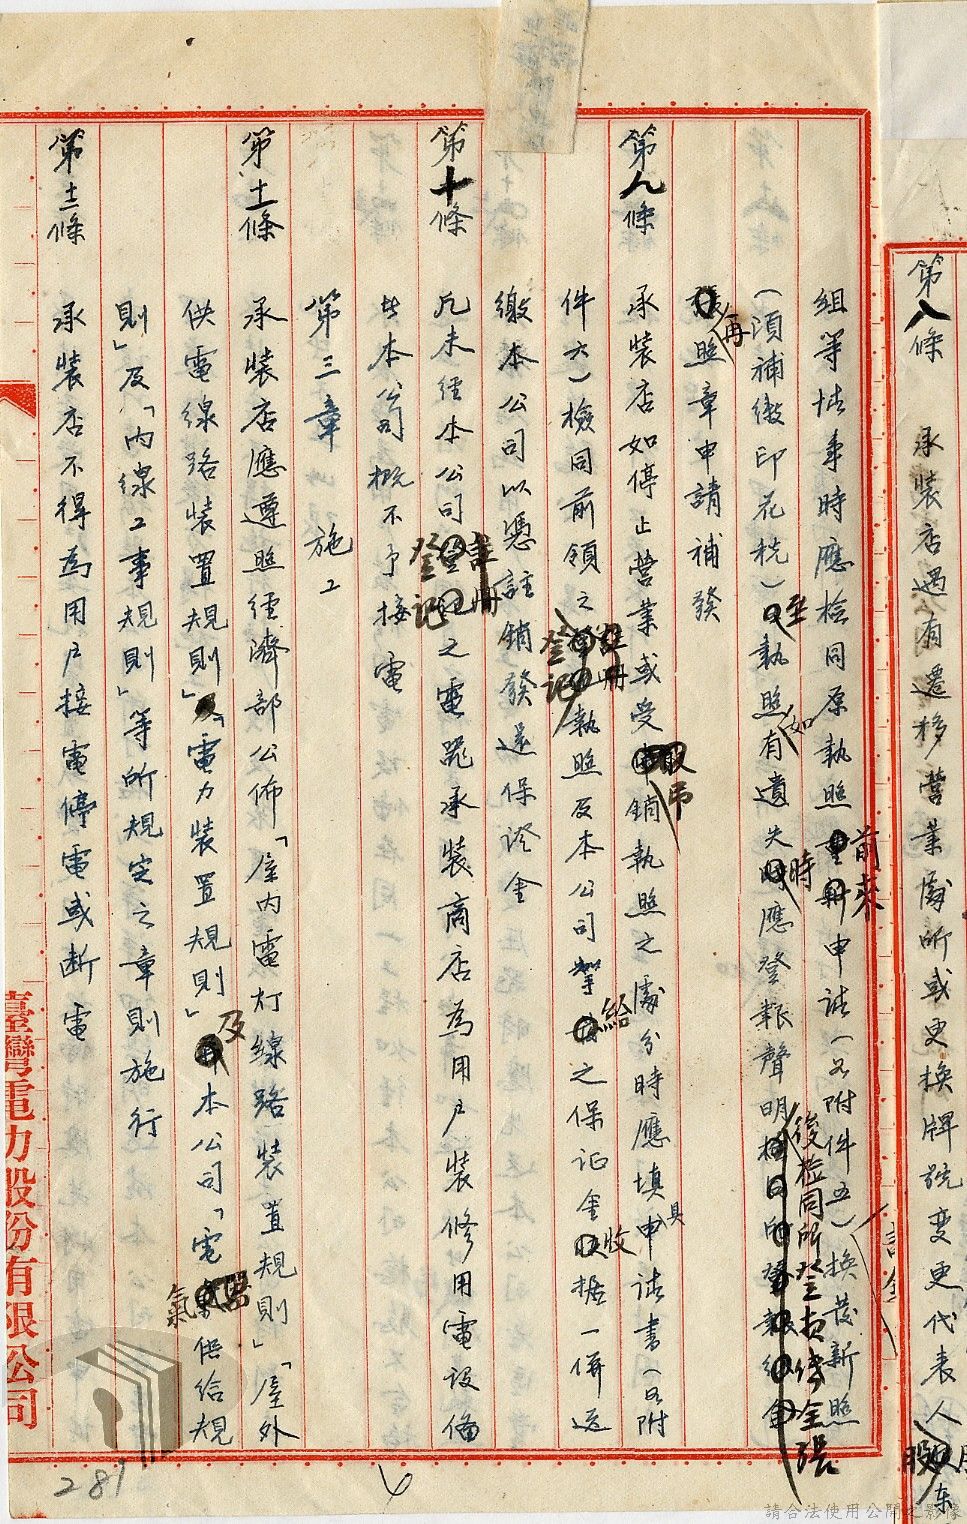 第八條　承裝店遇有遷移營業處所或更換牌號變更代表人股東
組等情事時應檢同原執照前來申請（呂附件五）換發新照
（須補繳印花稅）至執照如有遺失時應登報聲明後檢同所登報紙全張
再照章申請補發
第九條　承裝店如停止營業或受吊銷執照之處分時應填具申請書（呂附
件六）檢同前領之登記執照及本公司給之保証金收据一併送
繳本公司以憑註銷發還保證金
第十條　凡未經本公司登記之電器承裝商店為用戶裝修用電設備
者本公司概不予接電
第三章　施工
第十一條　承裝店應遵照經濟部公佈「屋內電灯線路裝置規則」「屋外
供電線路裝置規則」「電力裝置規則」及本公司「電氣供給規
則」及「內線工事規則」等所規定之章則施行
第十二條　承裝店不得為用戶接電停電或断電
臺灣電力股份有限公司
281
請合法使用公開之影像